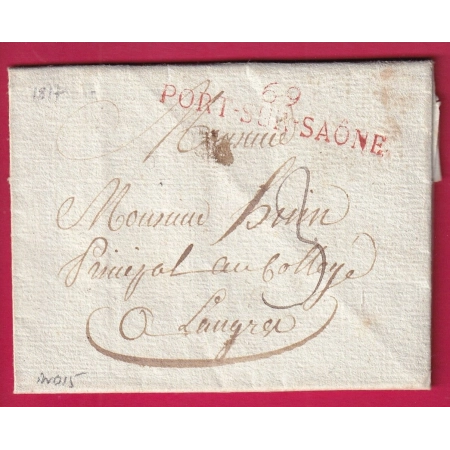 1817
69
PORT-SUR-SAÔNE
Monsieur
Monsieur
Principal au College
A Langres